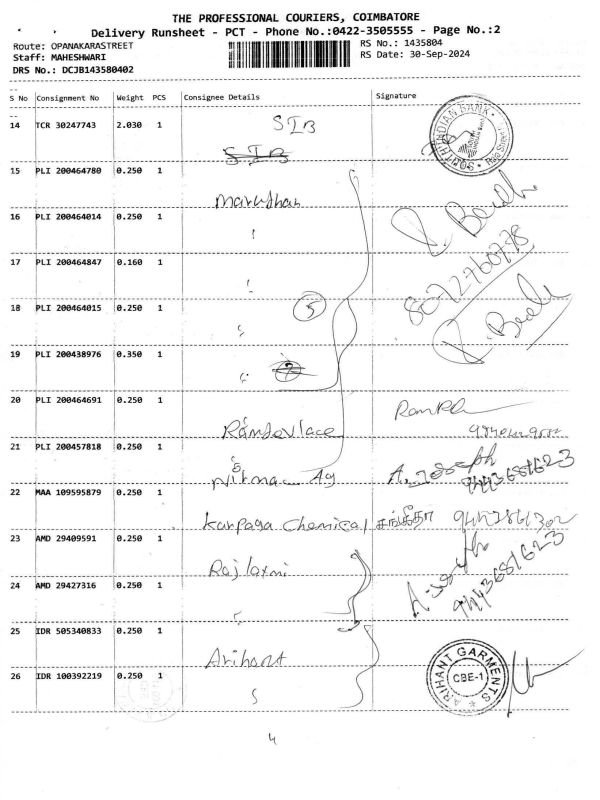 THE PROFESSIONAL COURIERS, COIMBATORE
Delivery Runsheet - PCT - Phone No.:0422-3505555 - Page No.:2
Route: OPANAKARASTREET
RS No.: 1435804
Staff: MAHESHWARI
RS Date: 30-Sep-2024
DRS No.: DCJB143580402
S No Consignment No Weight PCS Consignee Details Signature
14 TCR 30247743 2.030 1 SIB
SIB
SOUTH INDIAN BANK
15 PLI 200464780 0.250 1
Marudhar
16 PLI 200464014 0.250 1
17 PLI 200464847 0.160 1
8072760778
18 PLI 200464015 0.250 1
5
19 PLI 200438976 0.350 1
20 PLI 200464691 0.250 1
Ramdev lace
21 PLI 200457818 0.250 1
A. Joseph
9443681623
22 MAA 109595879 0.250 1
Karpaga Chemical சங்கீதா
23 AMD 29409591 0.250 1
Rajlaxmi
9443681623
24 AMD 29427316 0.250 1
25 IDR 505340833 0.250 1
Arihant
ARIHANT GARMENTS
CBE-1
26 IDR 100392219 0.250 1
4